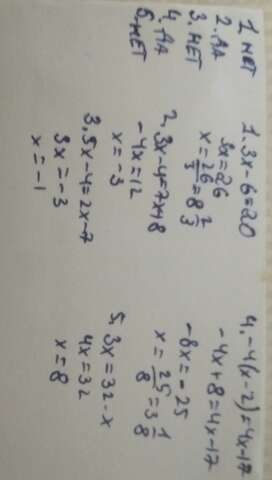 1 НЕТ
2. ДА
3. НЕТ
4. ДА
5. НЕТ
1. 3x-6=20
3x=26
x=26/3=8 2/3
2. 3x-4=7x+8
-4x=12
x=-3
3. 5x-4=2x-7
3x=-3
x=-1
4. -4(x-2)=4x-17
-4x+8=4x-17
-8x=-25
x=25/8=3 1/8
5. 3x=32-x
4x=32
x=8